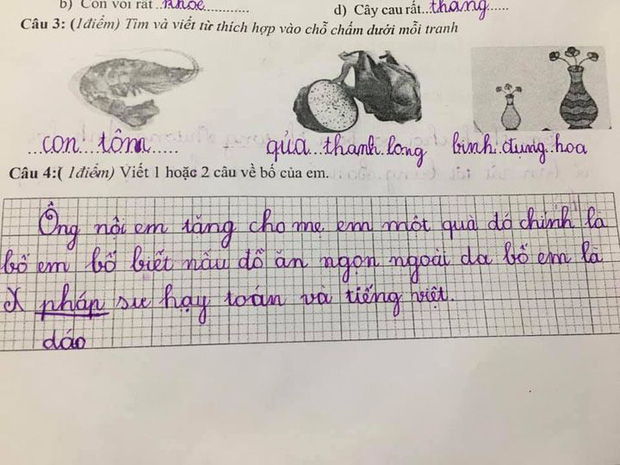 b) Con voi rất ..khỏe............
d) Cây cau rất..thẳng......
Câu 3: (1điểm) Tìm và viết từ thích hợp vào chỗ chấm dưới mỗi tranh
...con tôm...... qủa thanh long bình đựng hoa
Câu 4:( 1điểm) Viết 1 hoặc 2 câu về bố của em.
Ông nội em tặng cho mẹ em một quà đó chính là
bố em bố biết nấu đồ ăn ngon ngoài da bố em là
X pháp sư hạy toán và tiếng việt.
dáo